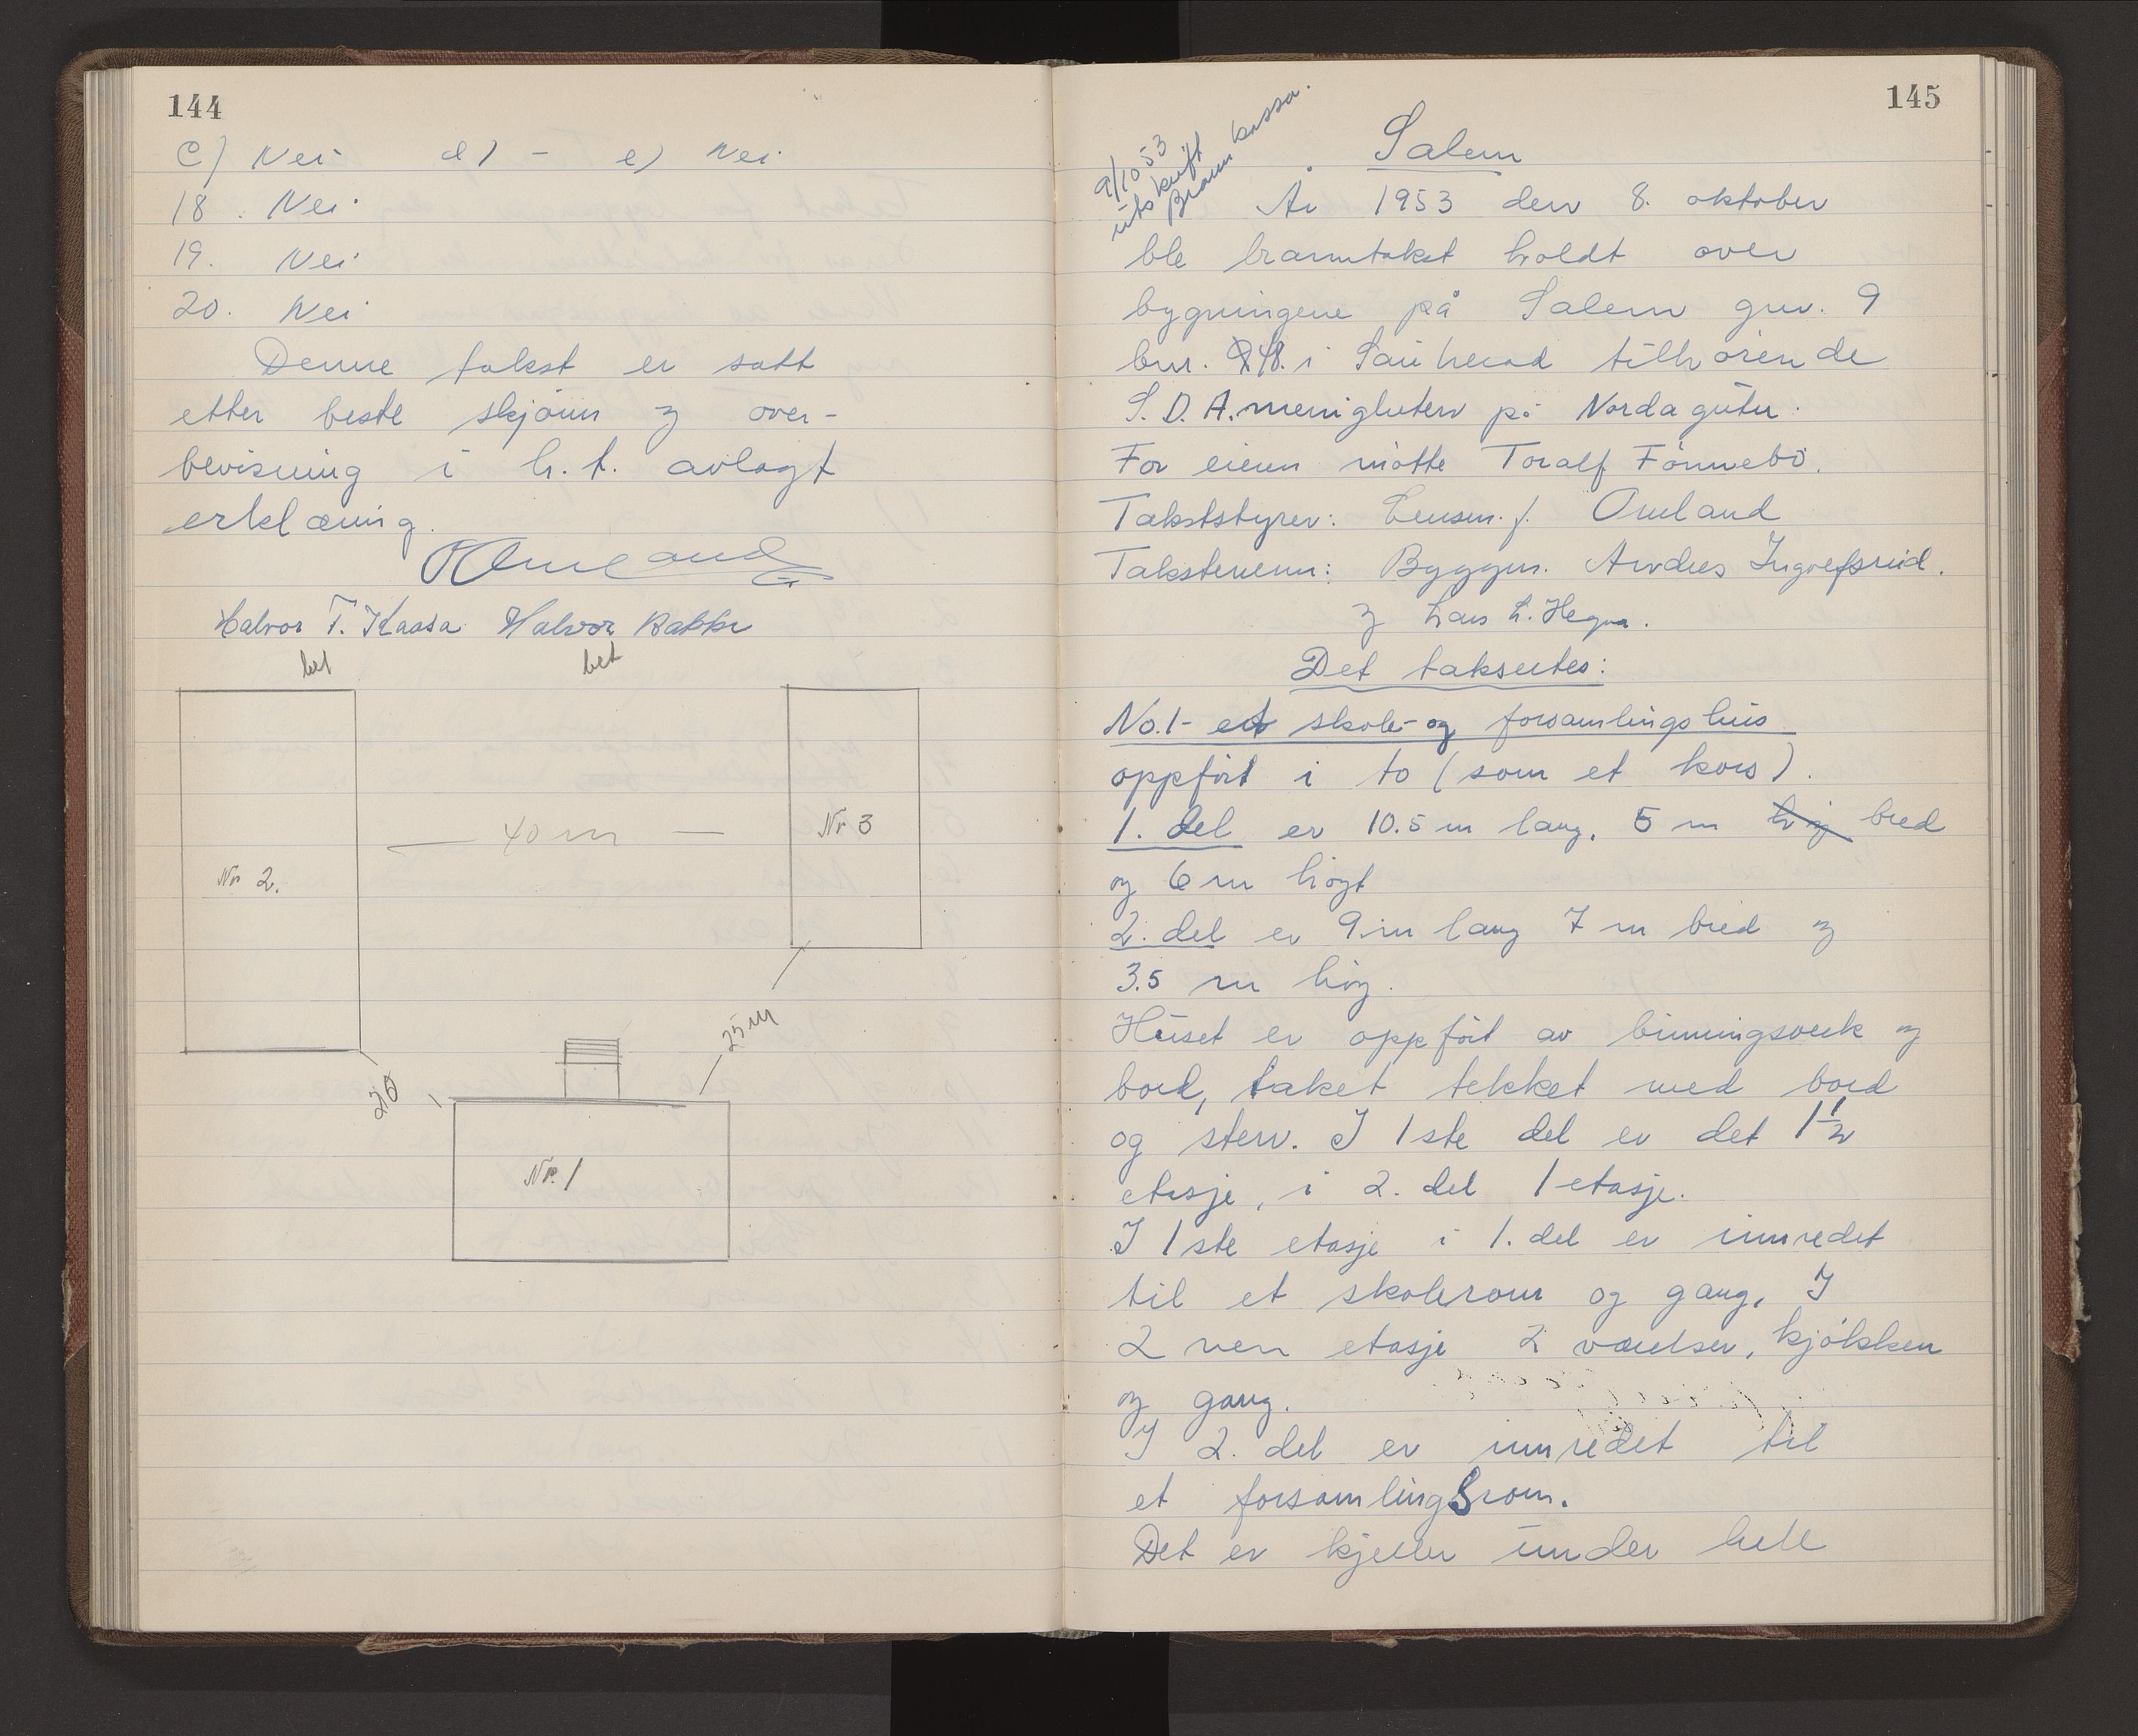 144
c) Nei d) - e) Nei
18. Nei
19. Nei
20. Nei
Denne takst er satt
etter beste skjønn og over-
bevisning i h. t. avlagt
erklæring.
Omland
Halvor T. Kaasa Halvor Bakke
bet bet
Nr 2.
40 m
Nr 3
20
25 m
Nr. 1
145
9/10 53
utskrift
Brannkassa.
Salem
År 1953 den 8. oktober
ble branntakst holdt over
bygningene på Salem gnr. 9
bnr. 48. i Sauherad tilhørende
S. D. A. menigheten på Nordagutu.
For eieren møtte Toralf Fønnebø.
Takststyrer: Lensm. f. Omland
Takstmenn: Byggm. Andres Ingolfsrud.
og Lars L. Hegna.
Det takseres:
No. 1 - et skole- og forsamlingshus
oppført i to (som et kors).
1. del er 10.5 m lang, 5 m høy bred
og 6 m høgt
2. del er 9 m lang 7 m bred og
3.5 m høy.
Huset er oppført av binningsverk og
bord, taket tekket med bord
og sten. I 1ste del er det 1 1/2
etasje, i 2. del 1 etasje.
I 1ste etasje i 1. del er innredet
til et skolerom og gang, I
2 nen etasje 2 værelser, kjøkken
og gang.
I 2. del er innredet til
et forsamlingsrom.
Det er kjeller under hele